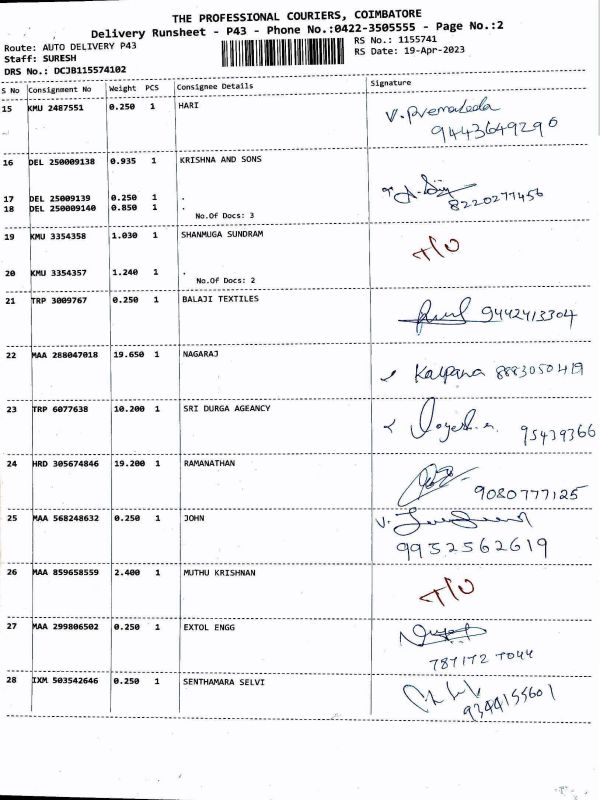 THE PROFESSIONAL COURIERS, COIMBATORE
Delivery Runsheet - P43 - Phone No.:0422-3505555 - Page No.:2
Route: AUTO DELIVERY P43
RS No.: 1155741
Staff: SURESH
RS Date: 19-Apr-2023
DRS No.: DCJB115574102
S No Consignment No Weight PCS Consignee Details Signature
15 KMU 2487551 0.250 1 HARI
9443649296
16 DEL 250009138 0.935 1 KRISHNA AND SONS
8220277456
17 DEL 25009139 0.250 1 .
18 DEL 250009140 0.850 1
No.Of Docs: 3
19 KMU 3354358 1.030 1 SHANMUGA SUNDRAM
T/O
20 KMU 3354357 1.240 1 .
No.Of Docs: 2
21 TRP 3009767 0.250 1 BALAJI TEXTILES
9442413304
22 MAA 288047018 19.650 1 NAGARAJ
Kalpana 8883050419
23 TRP 6077638 10.200 1 SRI DURGA AGEANCY
95439366
24 HRD 305674846 19.200 1 RAMANATHAN
9080777125
25 MAA 568248632 0.250 1 JOHN
9952562619
26 MAA 859658559 2.400 1 MUTHU KRISHNAN
T/O
27 MAA 299806502 0.250 1 EXTOL ENGG
28 IXM 503542646 0.250 1 SENTHAMARA SELVI
9344155601